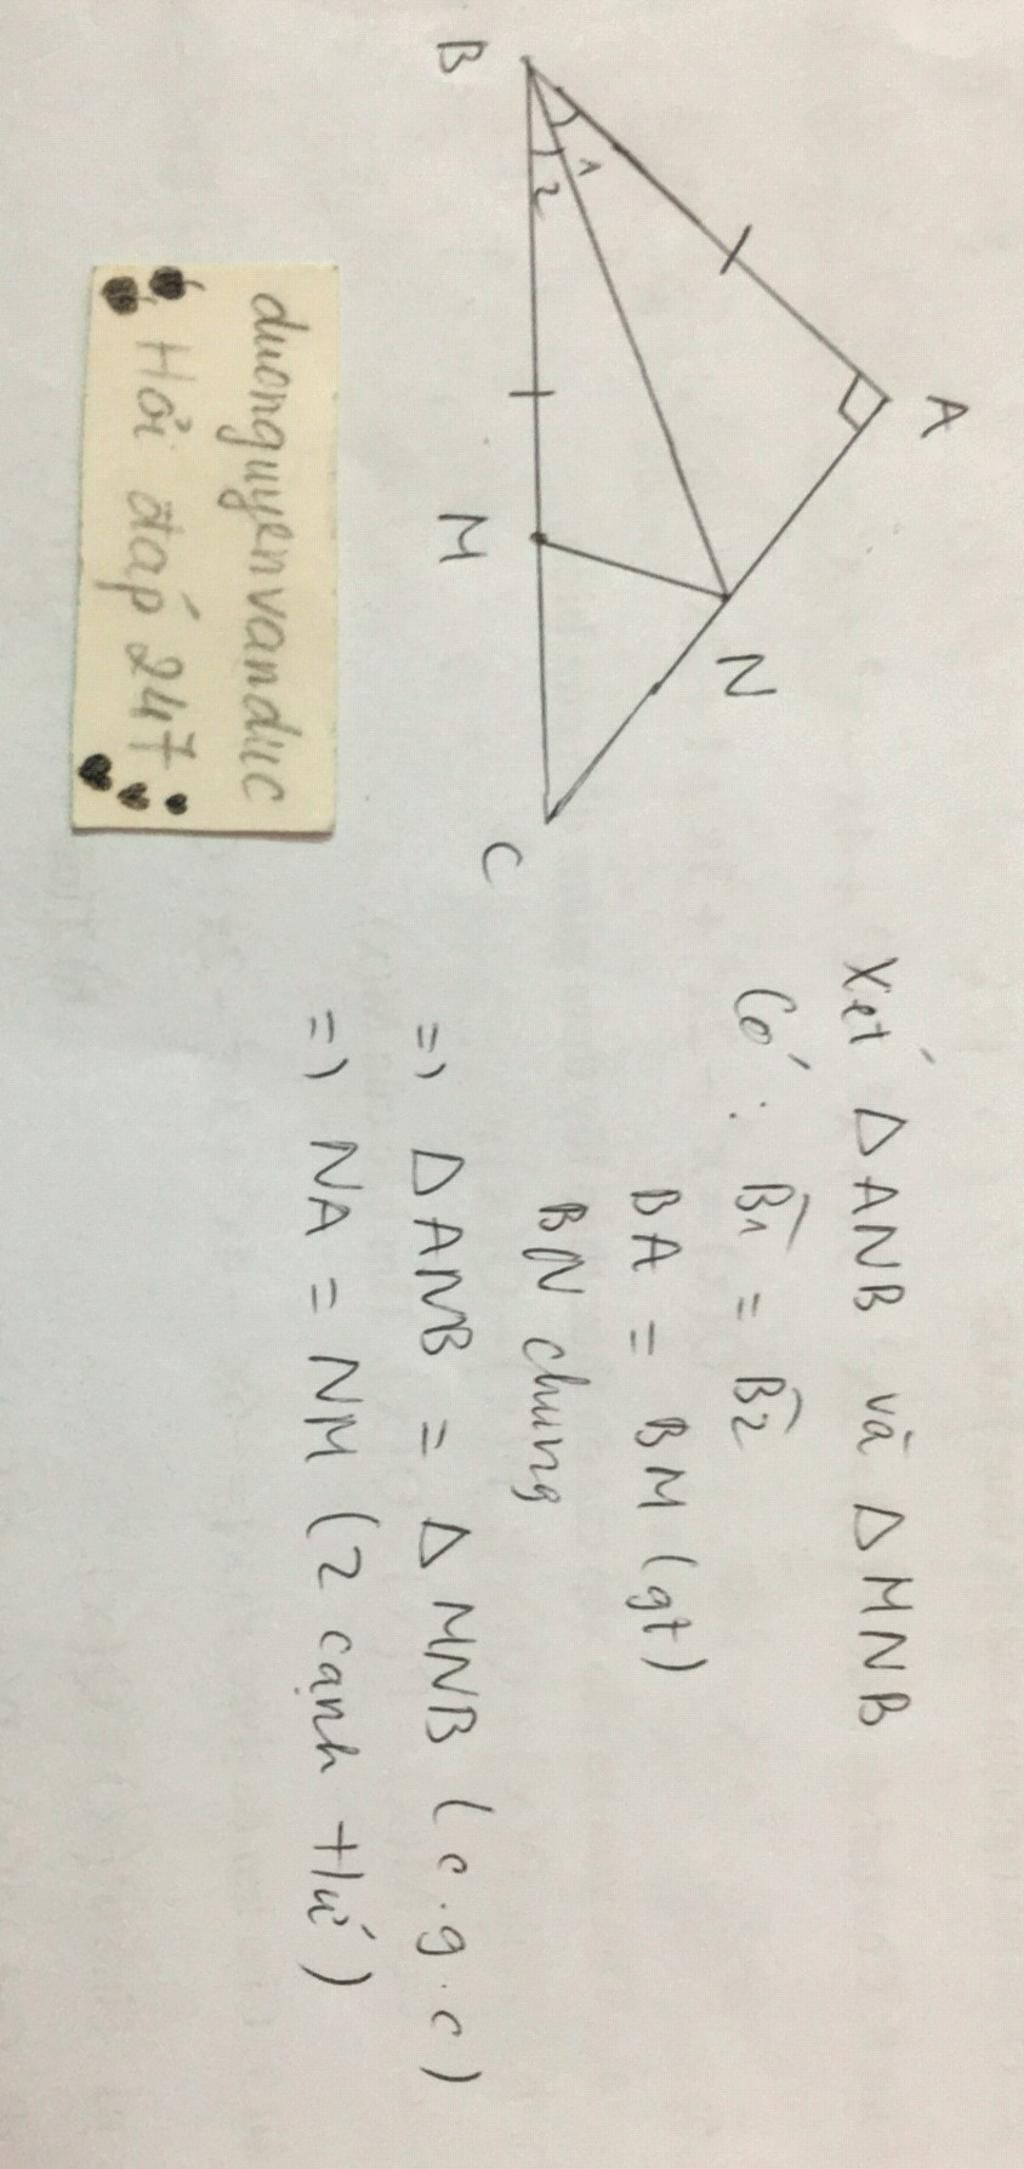 A
B
1
2
M
N
C
duongnguyenvanduc
Hỏi đáp 247
Xét ΔANB và ΔMNB
Có: B̂1 = B̂2
BA = BM (gt)
BN chung
=> ΔANB = ΔMNB (c.g.c)
=> NA = NM (2 cạnh tứ)